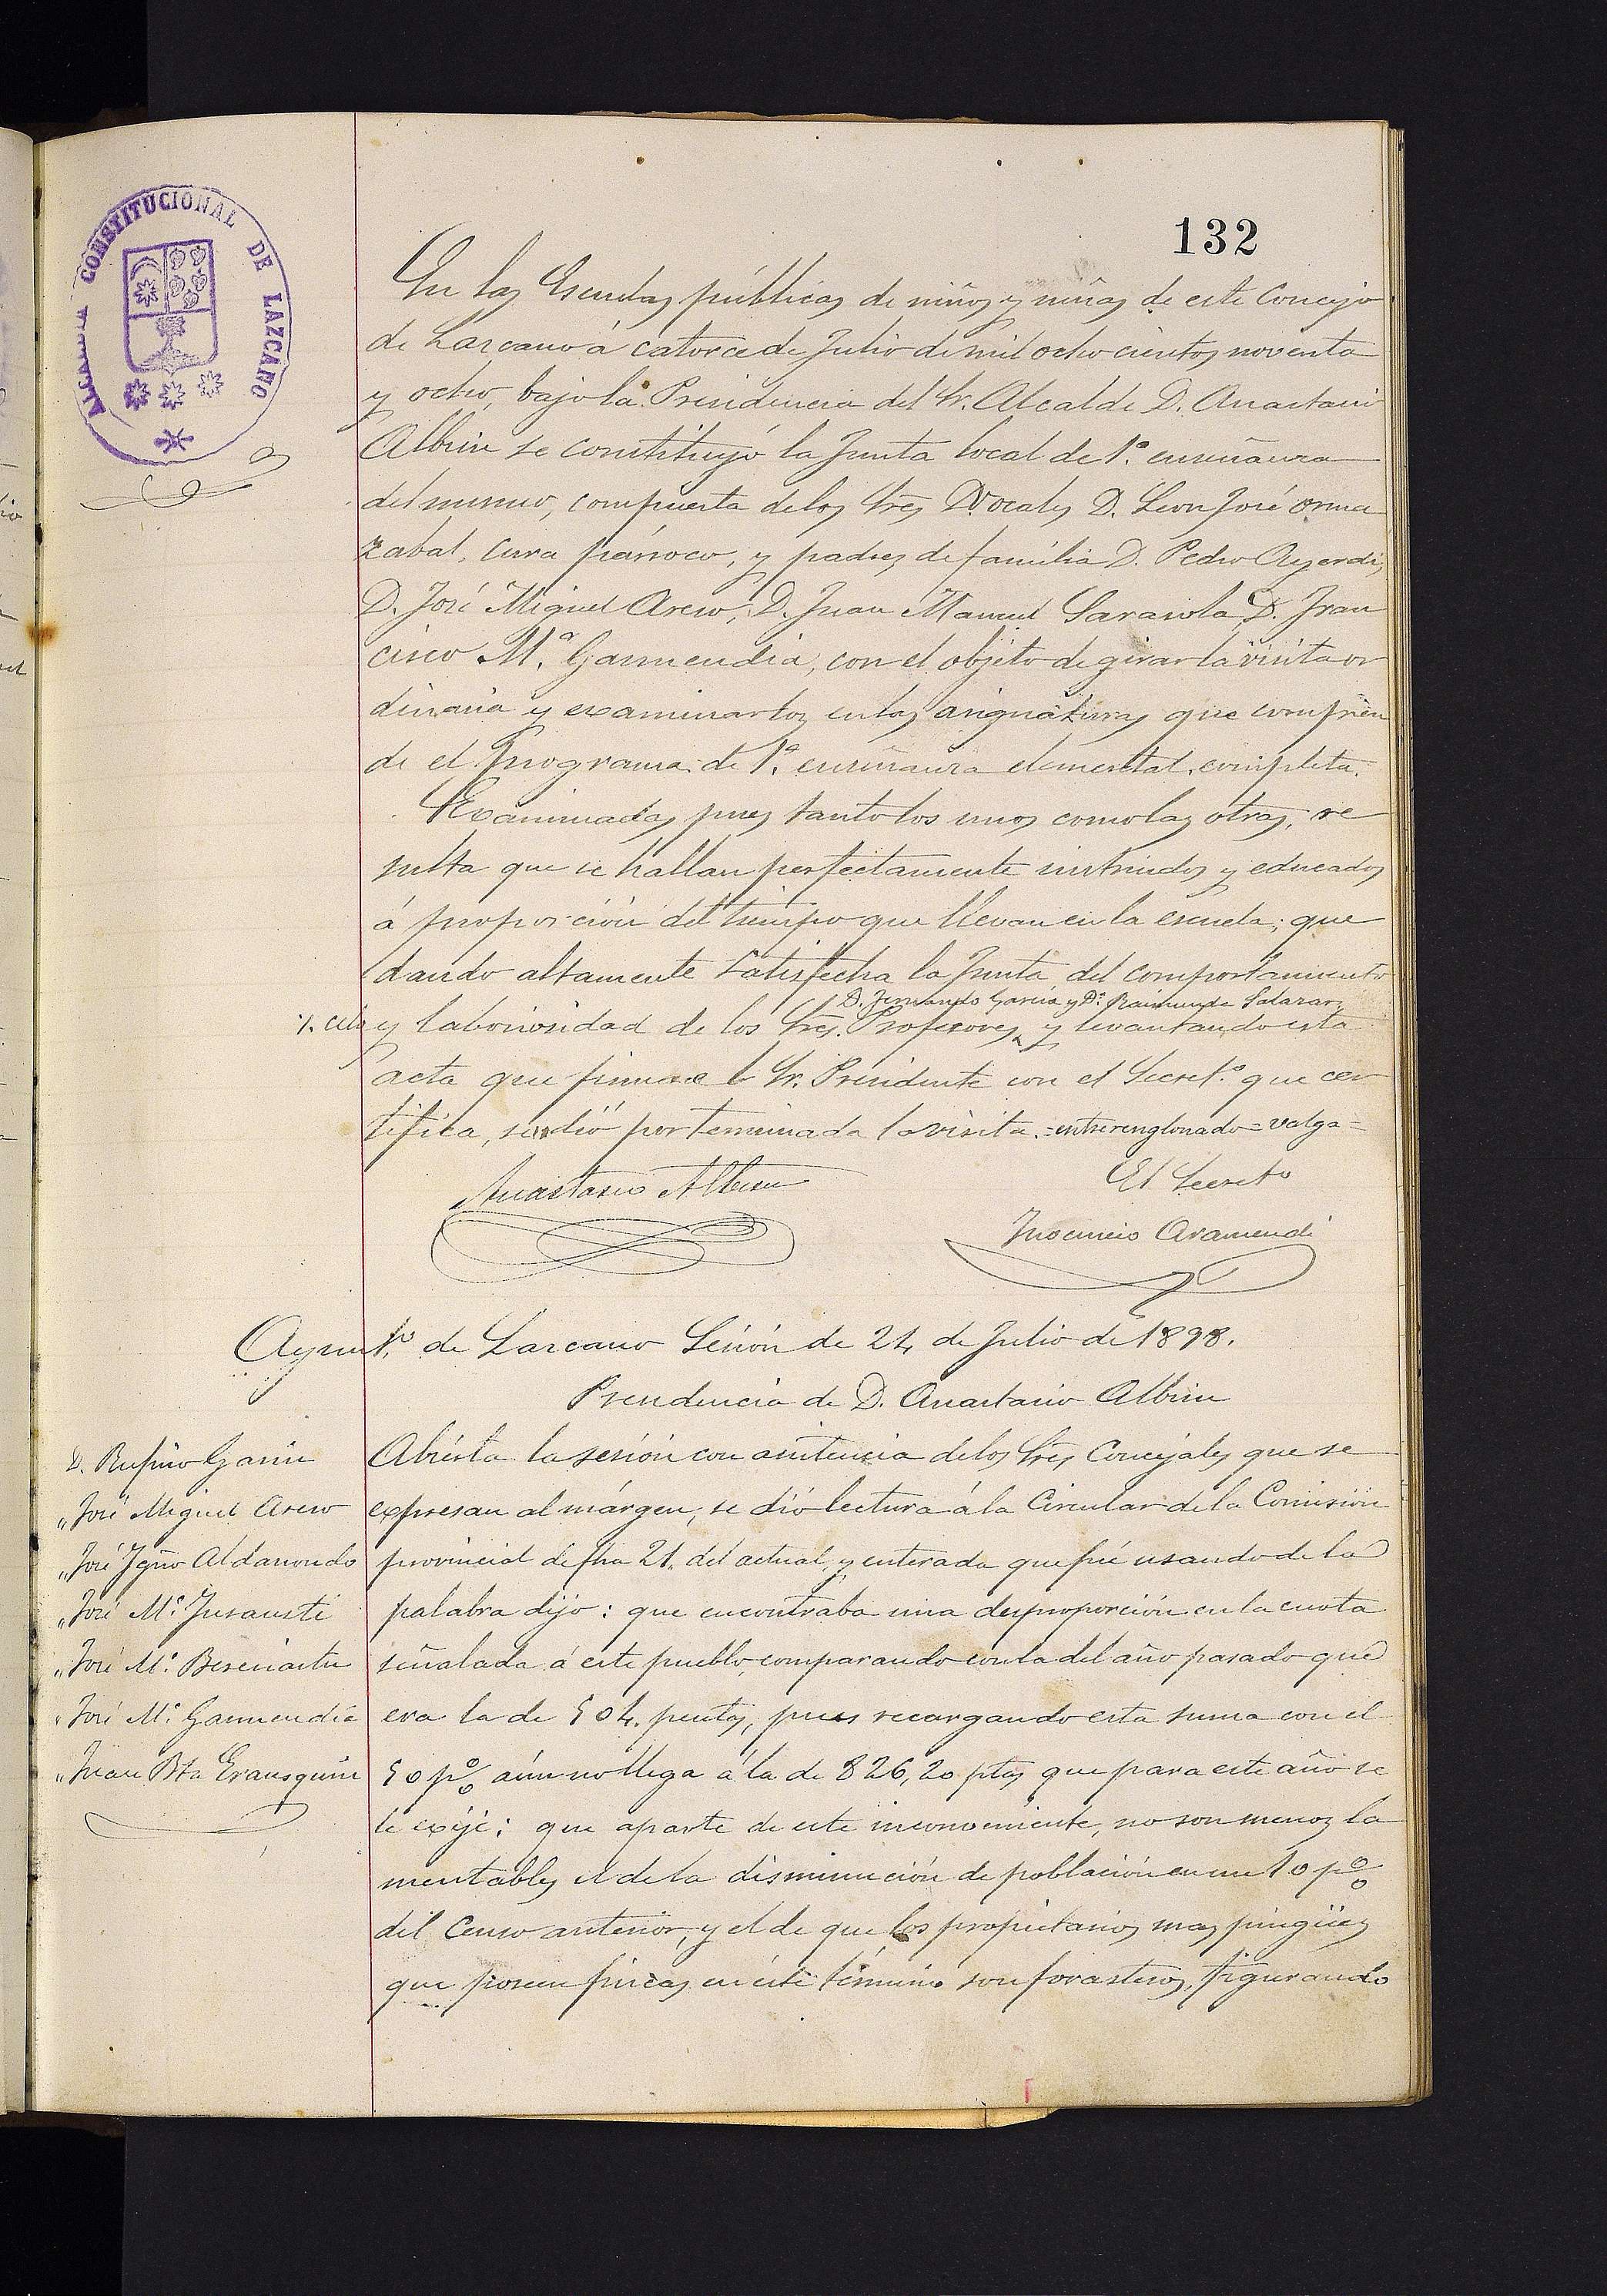 ALCALDIA CONSTITUCIONAL DE LAZCANO
132
En las Escuelas públicas de niños y niñas de este Concejo
de Lazcano á catorce de Julio de mil ocho cientos noventa
y ocho, bajo la Presidencia del Sr. Alcalde D. Anastasio
Albisu se constituyó la Junta local de 1.ª enseñanza
del mismo, compuesta de los Sres Vocales D. Leon José Orma
zabal, Cura párroco, y padres de familia D. Pedro Ayerdi,
D. José Miguel Areso, D. Juan Manuel Sarasola D. Fran
cisco M.ª Garmendia, con el objeto de girar la visita or
dinaria y examinarlos en las asignaturas que compren
de el programa de 1.ª enseñanza elemental completa.
Examinadas pues tanto los unos como las otras, re
sulta que se hallan perfectamente instruidos y educados
á proporción del tiempo que llevan en la escuela; que
dando altamente satisfecha la Junta del comportamiento
D. Fernando García y D.ª Raimunda Salazar,
y laboriosidad de los Sres. Profesores, y levantando esta
acta que firmará el Sr. Presidente con el Secret.º que cer
tifica, se dió por terminada la visita. = entrerenglonado = valga =
Anastasio Albisu
El Secret.º
Inocencio Aramendi
Ayunt.º de Lazcano Sesión de 24 de Julio de 1898.
Presidencia de D. Anastasio Albisu
D. Rufino Garin
„ José Miguel Areso
„ José Ign.º Aldanondo
„ José M.ª Insausti
„ José M.ª Bereciartu
„ José M.ª Garmendia
„ Juan Bta Erausquin
Abierta la sesión con asistencia de los Sres Concejales que se
expresan al márgen, se dió lectura á la Circular de la Comisión
provincial de fha 21. del actual, y enterada que fué usando de la
palabra dijo: que encontraba una desproporción en la cuota
señalada á este pueblo, comparando con la del año pasado que
era la de 504. pesetas, pues recargando esta suma con el
50 p% aún no llega á la de 826,20 ptas que para este año se
le exije; que aparte de este inconveniente, no son menos la
mentables el de la disminución de población en un 10 p%
del Censo anterior, y el de que los propietarios mas pingües
que poseen fincas en éste término son forasteros, figurando